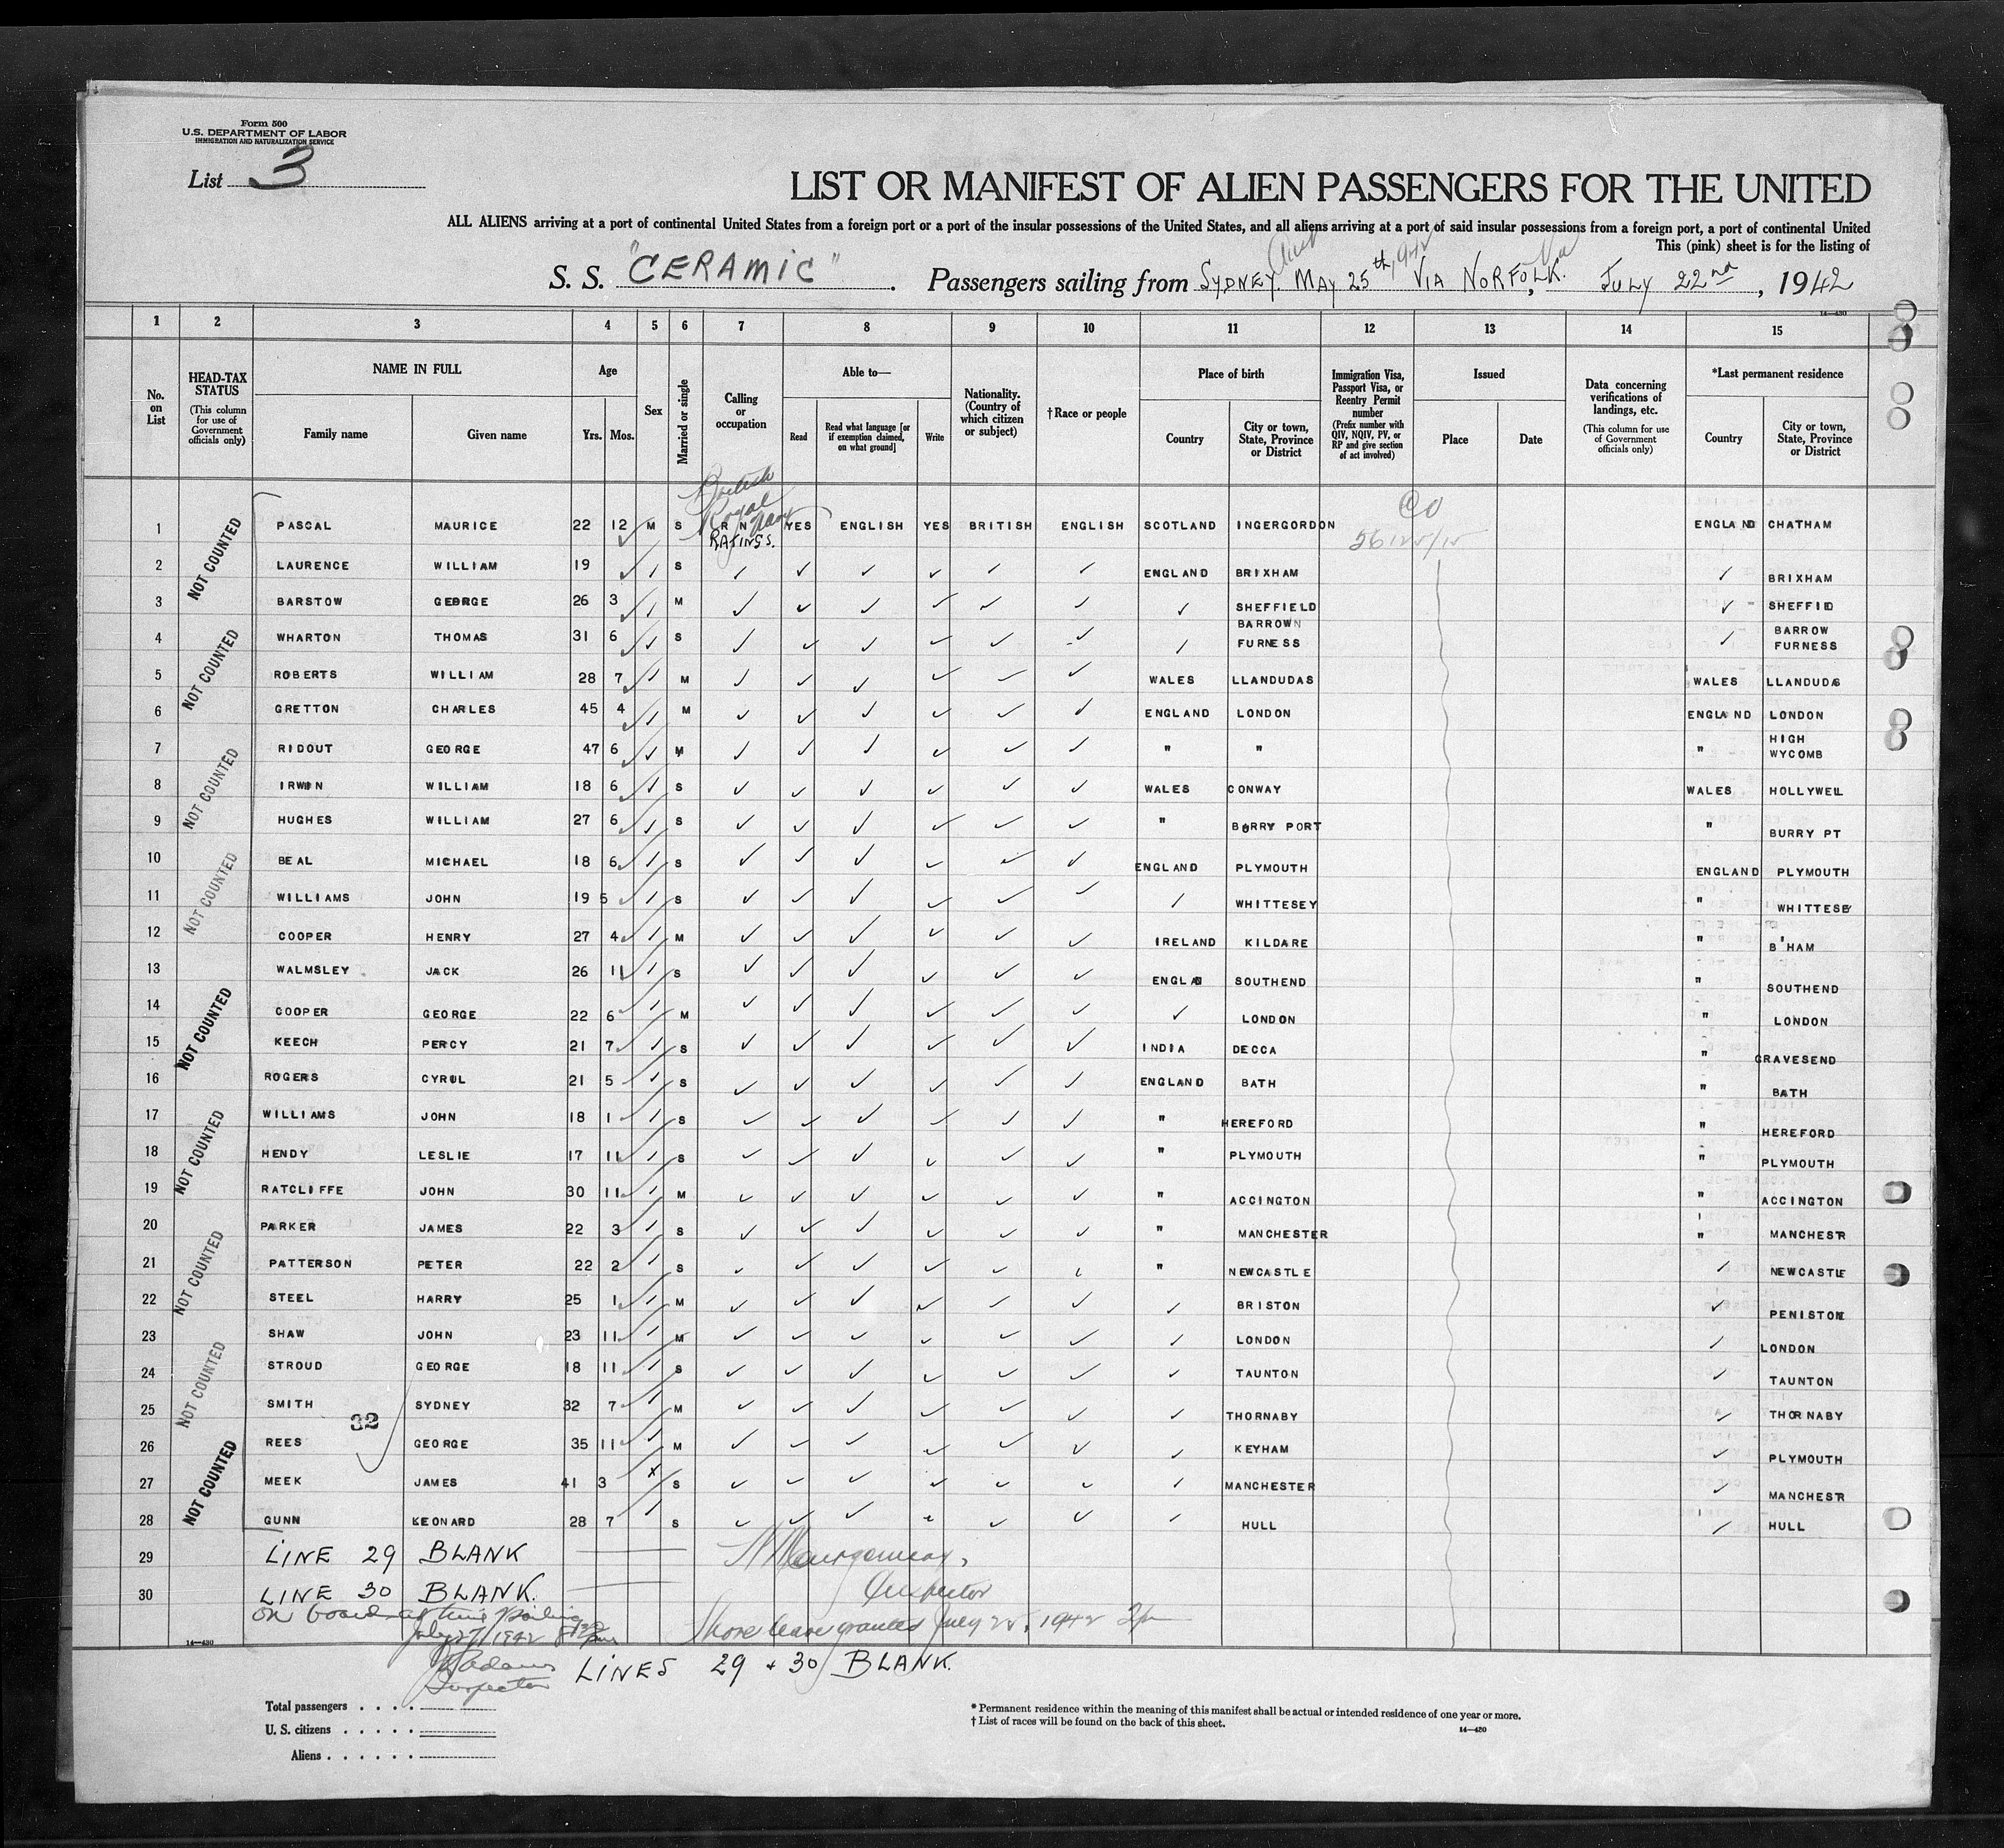 Form 500
U.S. DEPARTMENT OF LABOR
IMMIGRATION AND NATURALIZATION SERVICE
List 3
LIST OR MANIFEST OF ALIEN PASSENGERS FOR THE UNITED
ALL ALIENS arriving at a port of continental United States from a foreign port or a port of the insular possessions of the United States, and all aliens arriving at a port of said insular possessions from a foreign port, a port of continental United
This (pink) sheet is for the listing of
S. S. "CERAMIC". Passengers sailing from SYDNEY. MAY 25th, 942 VIA NORFOLK. JULY 22nd, 1942
14—430
1 2 3 4 5 6 7 8 9 10 11 12 13 14 15
No. on List
HEAD-TAX STATUS (This column for use of Government officials only)
NAME IN FULL
Family name Given name
Age
Yrs. Mos.
Sex
Married or single
Calling or occupation
Able to—
Read
Read what language [or if exemption claimed, on what ground]
Write
Nationality. (Country of which citizen or subject)
†Race or people
Place of birth
Country
City or town, State, Province or District
Immigration Visa, Passport Visa, or Reentry Permit number (Prefix number with QIV, NQIV, PV, or RP and give section of act involved)
Issued
Place Date
Data concerning verifications of landings, etc. (This column for use of Government officials only)
*Last permanent residence
Country
City or town, State, Province or District
British Royal Navy
1 PASCAL MAURICE 22 12 M S R N RATINGS. YES ENGLISH YES BRITISH ENGLISH SCOTLAND INGERGORDON ENGLAND CHATHAM
2 LAURENCE WILLIAM 19 S ENGLAND BRIXHAM BRIXHAM
3 BARSTOW GEORGE 26 3 M SHEFFIELD SHEFFID
4 WHARTON THOMAS 31 6 S BARROWN FURNESS BARROW FURNESS
5 ROBERTS WILLIAM 28 7 M WALES LLANDUDAS WALES LLANDUDAS
6 GRETTON CHARLES 45 4 M ENGLAND LONDON ENGLAND LONDON
7 RIDOUT GEORGE 47 6 M " " " HIGH WYCOMB
8 IRWIN WILLIAM 18 6 S WALES CONWAY WALES HOLLYWELL
9 HUGHES WILLIAM 27 6 S " BURRY PORT " BURRY PT
10 BEAL MICHAEL 18 6 S ENGLAND PLYMOUTH ENGLAND PLYMOUTH
11 WILLIAMS JOHN 19 5 S WHITTESEY " WHITTESEY
12 COOPER HENRY 27 4 M IRELAND KILDARE " B'HAM
13 WALMSLEY JACK 26 11 S ENGLAD SOUTHEND " SOUTHEND
14 COOPER GEORGE 22 6 M LONDON " LONDON
15 KEECH PERCY 21 7 S INDIA DECCA " GRAVESEND
16 ROGERS CYRUL 21 5 S ENGLAND BATH " BATH
17 WILLIAMS JOHN 18 1 S " HEREFORD " HEREFORD
18 HENDY LESLIE 17 11 S " PLYMOUTH " PLYMOUTH
19 RATCLIFFE JOHN 30 11 M " ACCINGTON " ACCINGTON
20 PARKER JAMES 22 3 S " MANCHESTER " MANCHESTR
21 PATTERSON PETER 22 2 S " NEWCASTLE NEWCASTLE
22 STEEL HARRY 25 1 M BRISTON PENISTONE
23 SHAW JOHN 23 11 M LONDON LONDON
24 STROUD GEORGE 18 11 S TAUNTON TAUNTON
25 SMITH SYDNEY 32 7 M THORNABY THORNABY
32
26 REES GEORGE 35 11 M KEYHAM PLYMOUTH
27 MEEK JAMES 41 3 S MANCHESTER MANCHESTR
28 GUNN KEONARD 28 7 S HULL HULL
NOT COUNTED
NOT COUNTED
NOT COUNTED
NOT COUNTED
NOT COUNTED
NOT COUNTED
NOT COUNTED
NOT COUNTED
NOT COUNTED
29 LINE 29 BLANK
30 LINE 30 BLANK.
Inspector
on board at time sailing
July 27/1942
Shore leave granted July 25, 1942 2pm
14—430
Adams
Inspector
LINES 29 + 30 BLANK.
Total passengers . . . .
U. S. citizens . . . . .
Aliens . . . . . .
* Permanent residence within the meaning of this manifest shall be actual or intended residence of one year or more.
† List of races will be found on the back of this sheet.
14—430